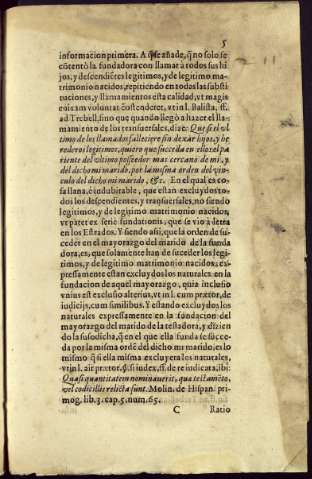 5
informacion primera. A que se añade, q̃ no solo se
cõtentò la fundadora con llamar à todos sus hi
jos, y descendiẽtes legitimos, y de legitimo ma-
trimonio nacidos, repitiendo en todas las substi
tuciones, y llamamientos esta calidad, vt magis
enixam voluntatẽ ostenderet, vt in l. Balista, ff.
ad Trebell. sino que quando llegò a hazer el lla-
mamiento de los transuersales, dize: Que si el vl
timo de los llamados falleciere sin dexar hijos, y he
rederos legitimos, quiero que succeda en ello el pa
riente del vltimo posseedor mas cercano de mi, y
del dicho mi marido, por la misma orden del vin-
culo del dicho mi marido, &c. En el qual es co-
sa llana, è indubitable, que estàn excluydos to-
dos los descendientes, y transuersales, no siendo
legitimos, y de legitimo matrimonio nacidos,
vt patet ex serie fundationis, que se vio à letra
en los Estrados. Y siendo assi, que la orden de su-
ceder en el mayorazgo del marido de la funda
dora, es, que solamente han de suceder los legi-
timos, y de legitimo matrimonio nacidos, ex-
pressamente estan excluydos los naturales en la
fundacion de aquel mayorazgo, quia inclusio
vnius est exclusio alterius, vt in l. cum prætor, de
iudicijs, cum similibus. Y estando excluydos los
naturales expressamente en la fundacion del
mayorazgo del marido de la testadora, y diziẽn
do la susodicha, q̃ en el que ella funda se succe-
da por la misma ordẽ del dicho mi marido, es lo
mismo q̃ si ella misma excluyera los naturales,
vt in l. ait prætor, §. si iudex, ff. de re iudicata, ibi:
Quasi quantitatem nominauerit, qua testamẽto,
vel codicillis relicta sunt. Molin. de Hispan. pri-
mog. lib. 3. cap. 5. num. 65.
C Ratio